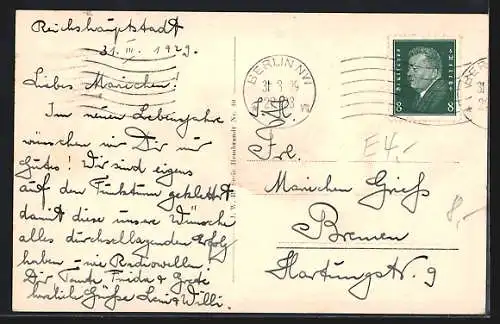 Reichshauptstadt
31. III. 1929.
Liebes Mariechen!
Im neuen Lebensjahre
wünschen wir Dir nur
Gutes! Wir sind eigens
auf den Funkturm geklettert
damit diese unsere Wünsche
alles durchschlagenden Erfolg
haben - wie Radiowellen.
Dir, Tante Frida & Grete
herzliche Grüße Leni & Willi.
BERLIN NW
31.3.29
Deutsches Reich
8 8
Frl.
Mariechen Grieß
Bremen
Hartungstr. 9
E4,-
8,-